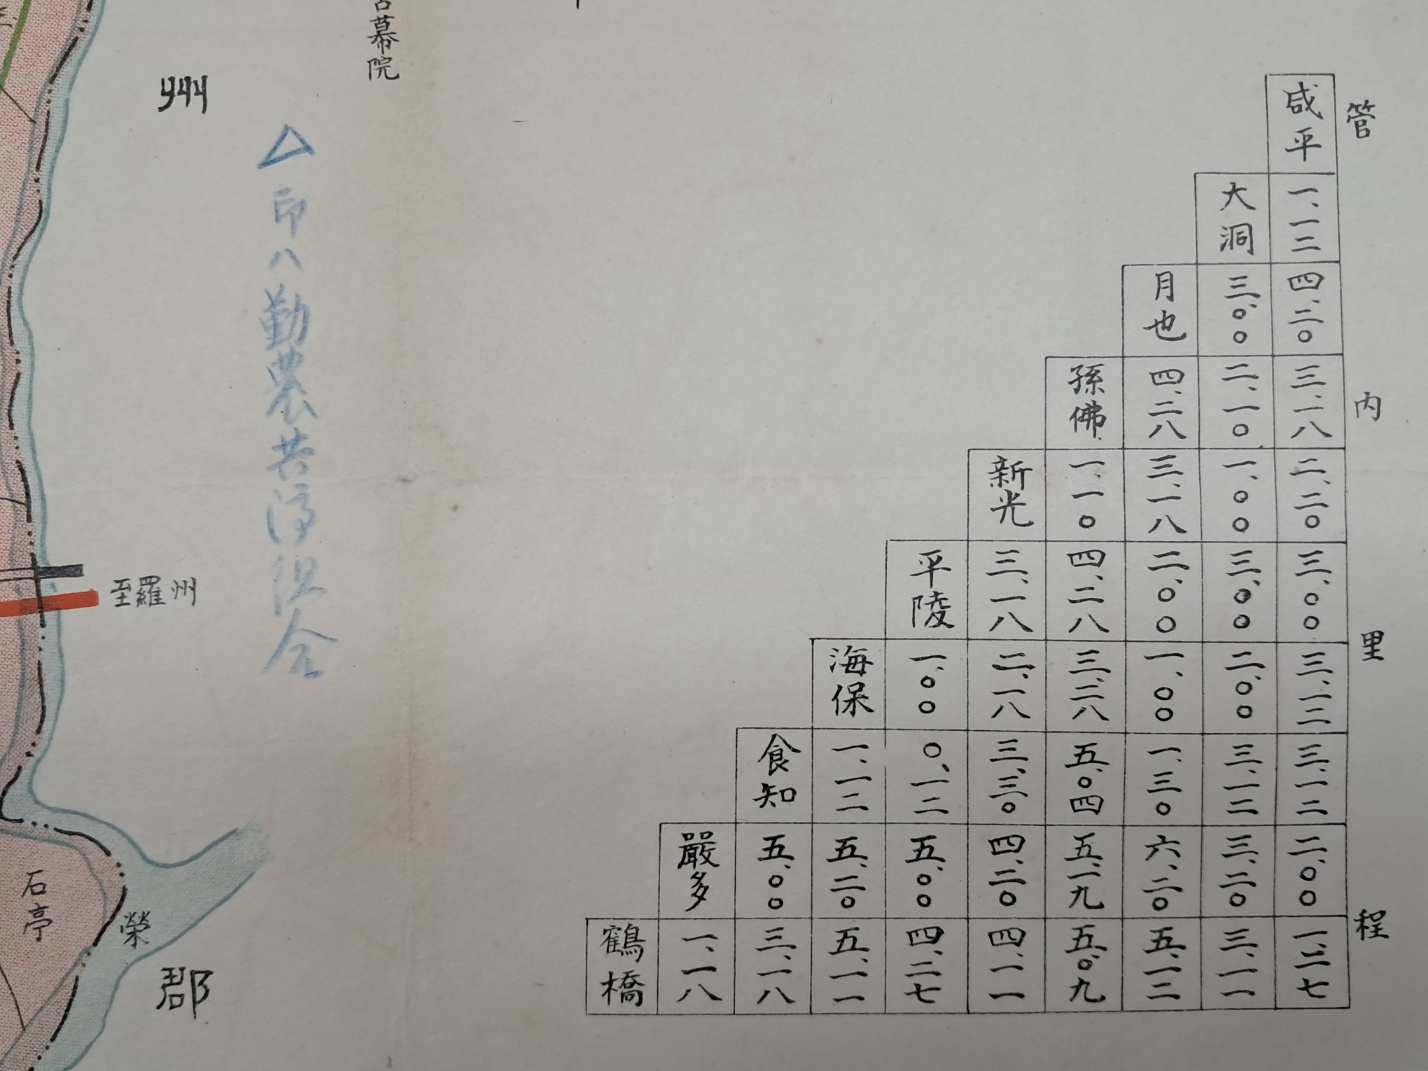 管内里程
咸平
大洞 一、一二
月也 三、〇〇 四、二〇
孫佛 四、二八 二、一〇 三、一八
新光 一、一〇 三、一八 一、〇〇 二、二〇
平陵 三、一八 四、二八 二、〇〇 三、〇〇 三、〇〇
海保 一、〇〇 二、一八 三、二八 一、〇〇 二、〇〇 三、一二
食知 一、一二 〇、一二 三、三〇 五、〇四 一、三〇 三、一二 三、一二
嚴多 五、〇〇 五、二〇 五、〇〇 四、二〇 五、一九 六、二〇 三、二〇 二、〇〇
鶴橋 一、一八 三、一八 五、一一 四、二七 四、一一 五、〇九 五、一二 三、一一 一、二七
幕院
△印ハ勤農共済組合
州
至羅州
郡
榮
石亭